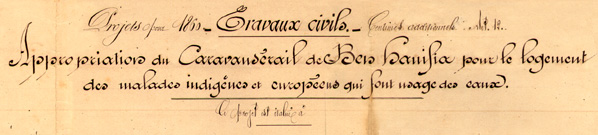 Projets pour Travaux civils. Centimes additionnels. Art. 12.
Appropriation du Caravansérail de Ben Hanifia pour le logement
des malades indigènes et européens qui font usage des eaux.
Ce projet est évalué à